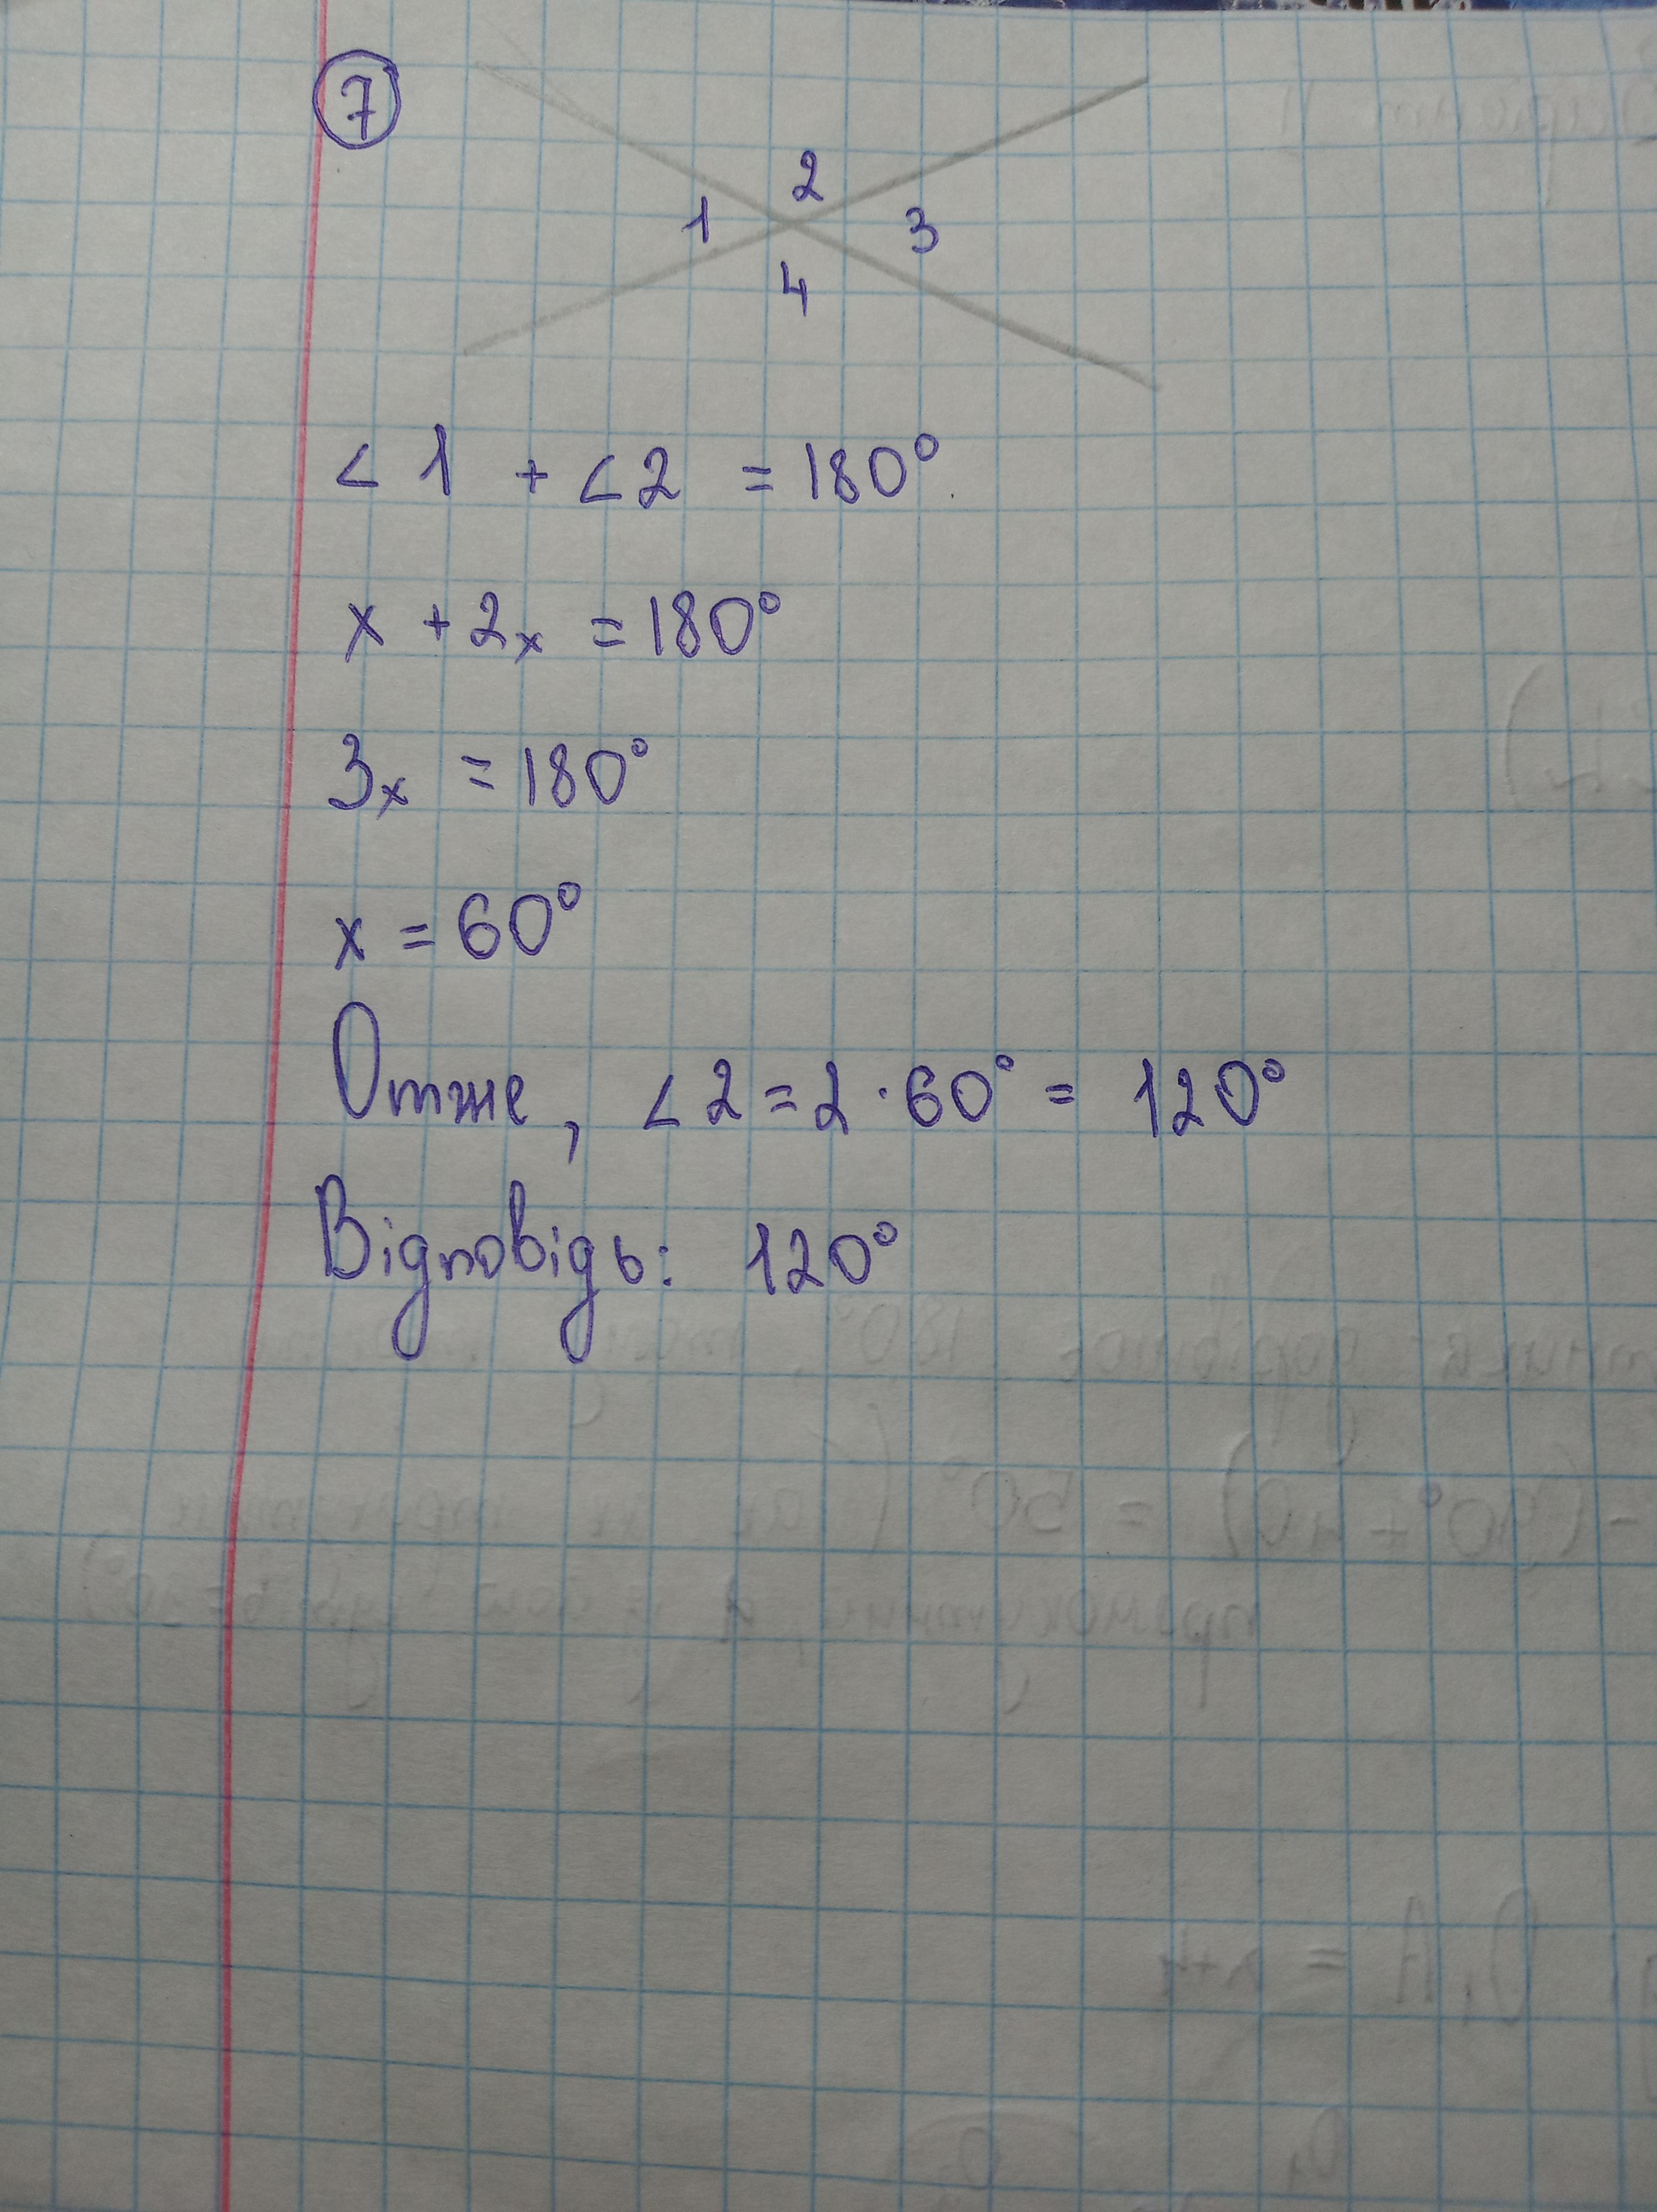 7
2
1 3
4
<1 + <2 = 180°
x + 2x = 180°
3x = 180°
x = 60°
Отже, <2 = 2·60° = 120°
Відповідь: 120°